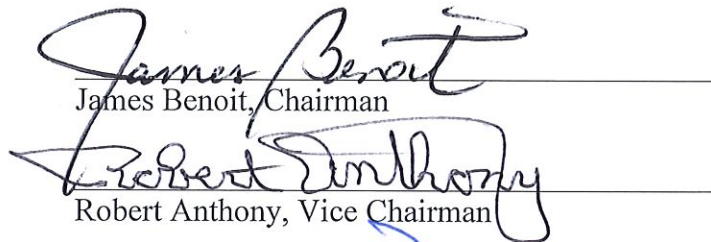 James Benoit
James Benoit, Chairman
Robert Anthony
Robert Anthony, Vice Chairman